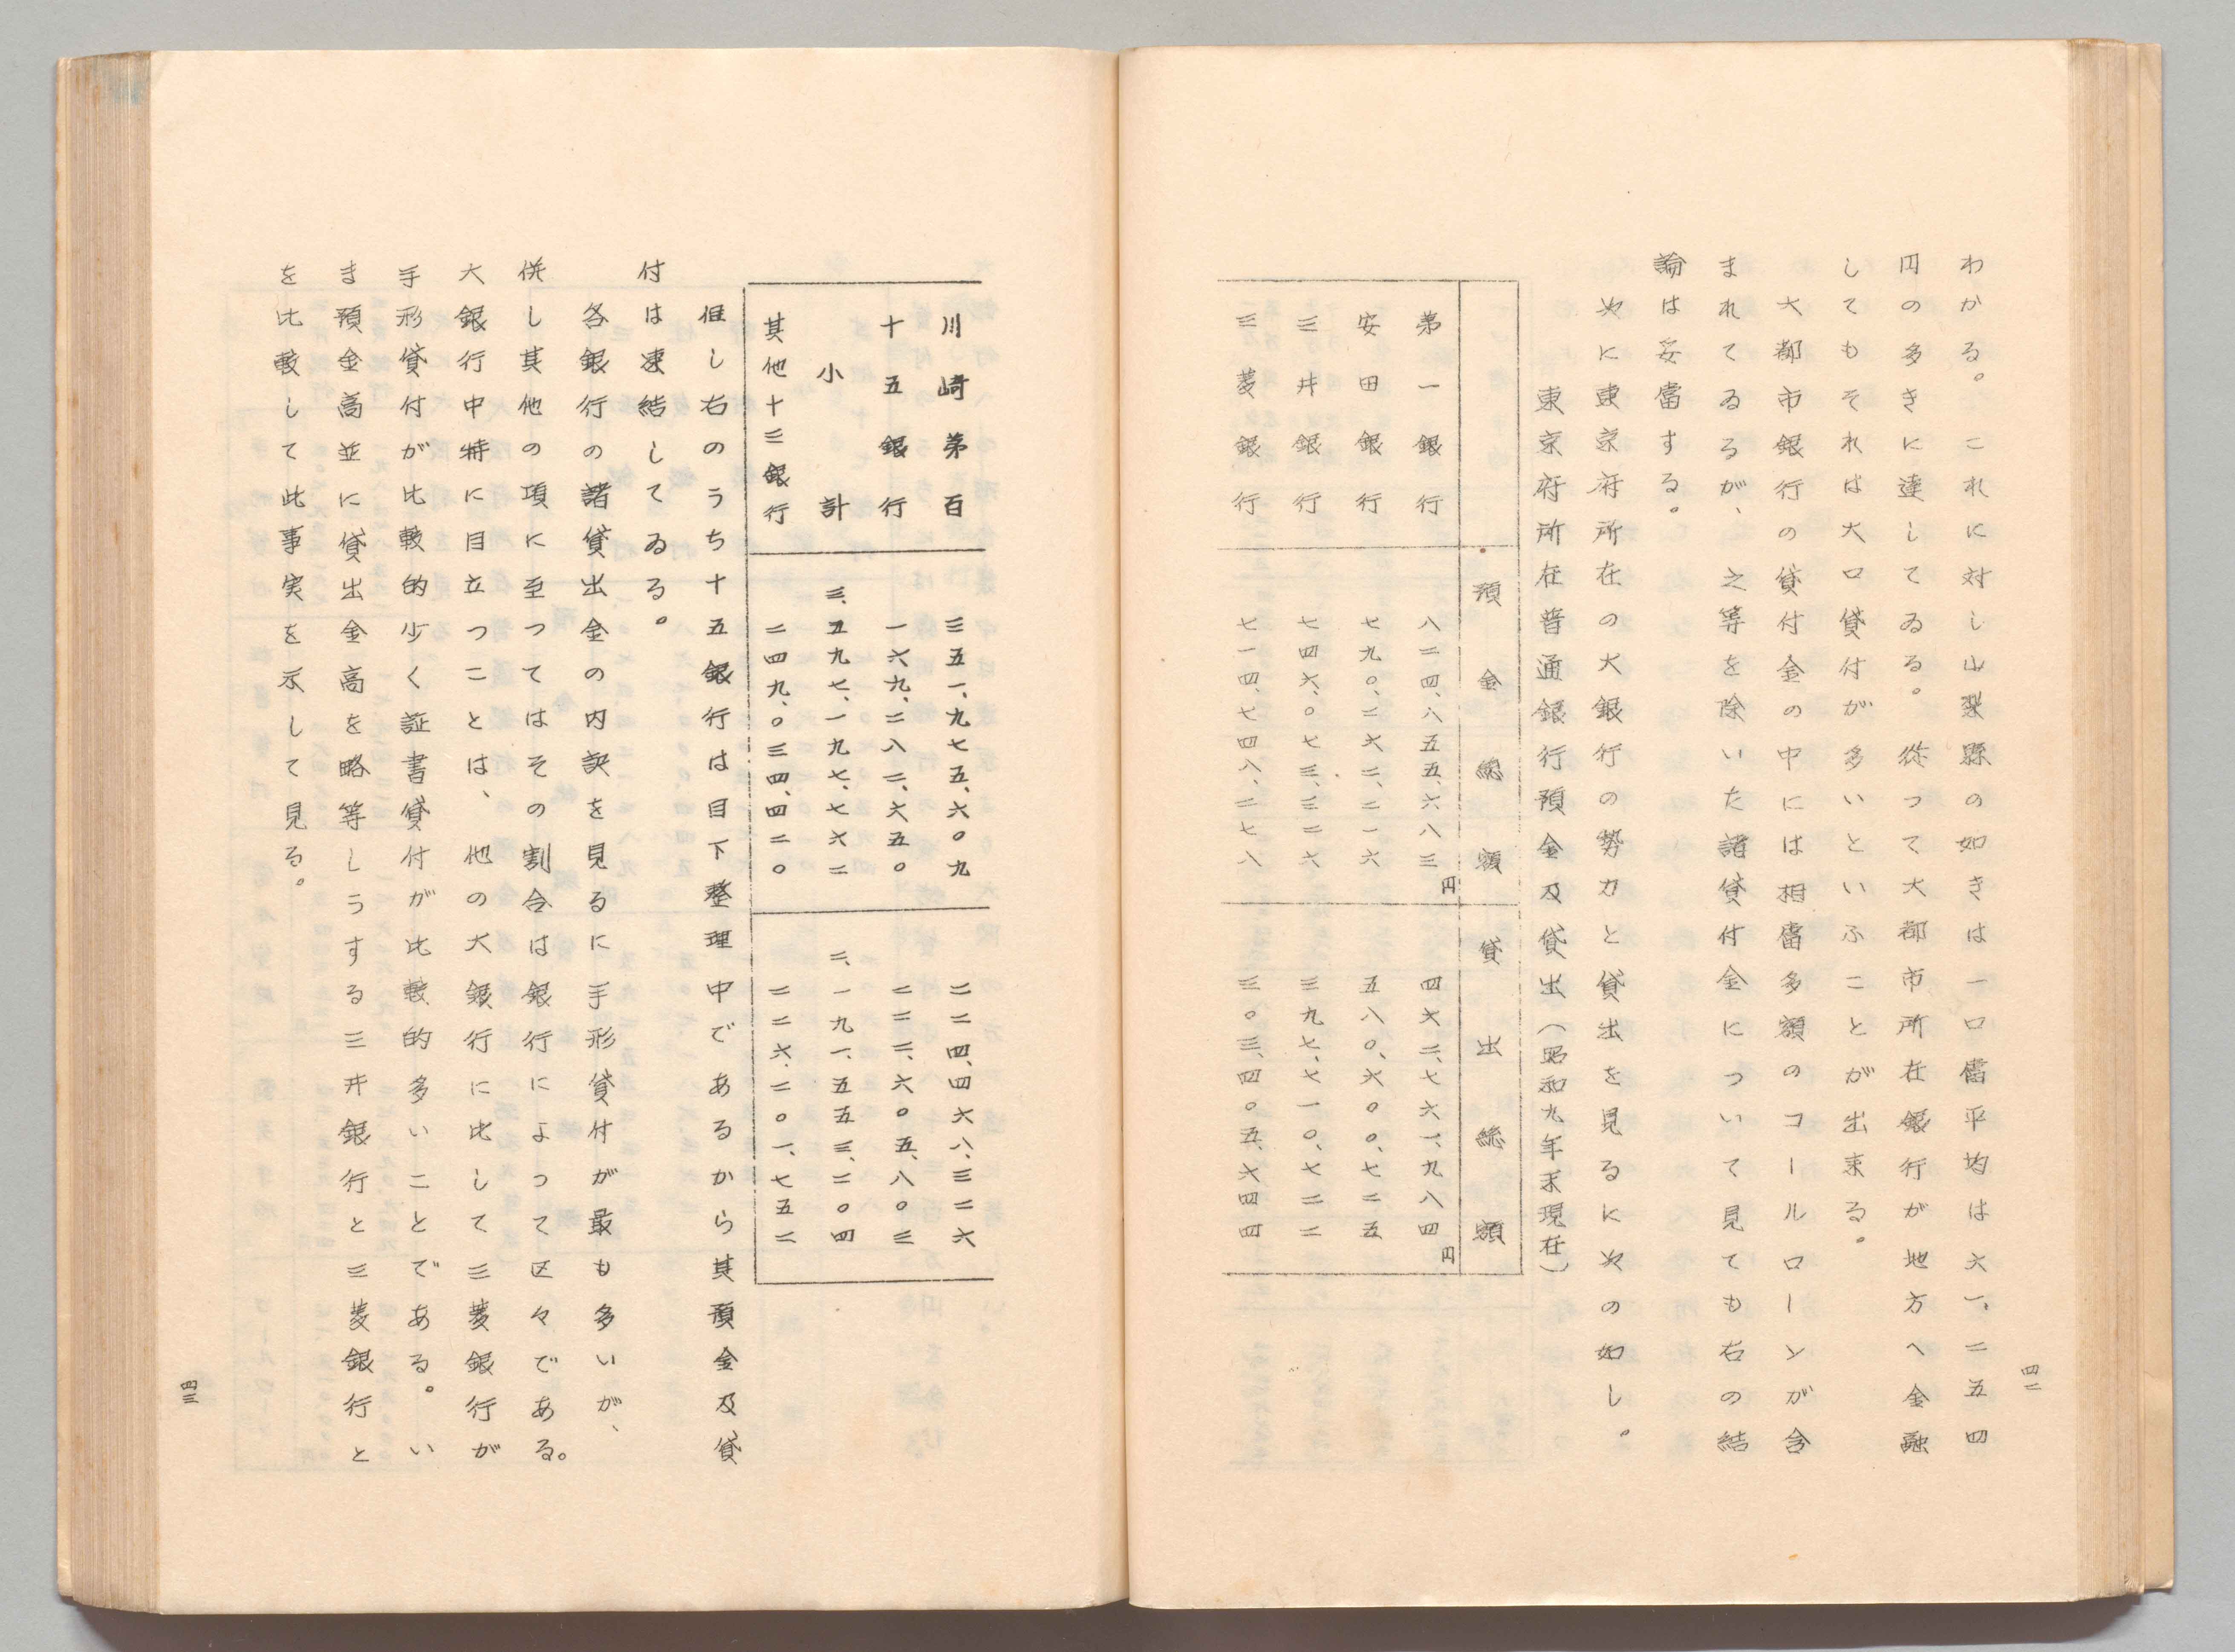 四二
わかる。これに対し山梨縣の如きは一口當平均は六一、二五四
円の多きに達してゐる。從つて大都市所在銀行が地方へ金融
してもそれは大口貸付が多いといふことが出来る。
大都市銀行の貸付金の中には相當多額のコールローンが含
まれてゐるが、之等を除いた諸貸付金について見ても右の結
論は妥當する。
次に東京府所在の大銀行の勢力と貸出を見るに次の如し。
東京府所在普通銀行預金及貸出（昭和九年末現在）
預金総額 貸出総額
第一銀行 八二四、八五五、六八三円 四六二、七六一、九八四円
安田銀行 七九〇、二六二、二一六 五八〇、六〇〇、七二五
三井銀行 七四六、〇七三、三二六 三九七、七一〇、七二二
三菱銀行 七一四、七四八、二七八 三〇三、四〇五、六四四
川崎第百 三五一、九七五、六〇九 二二四、四六八、三二六
十五銀行 一六九、二八二、六五〇 二二二、六〇五、八〇三
小計 三、五九七、一九七、七六二 二、一九一、五五三、二〇四
其他十三銀行 二四九、〇三四、四二〇 二二六、二〇一、七五二
但し右のうち十五銀行は目下整理中であるから其預金及貸
付は凍結してゐる。
各銀行の諸貸出金の内訳を見るに手形貸付が最も多いが、
併し其他の項に至つてはその割合は銀行によつて区々である。
大銀行中特に目立つことは、他の大銀行に比して三菱銀行が
手形貸付が比較的少く証書貸付が比較的多いことである。い
ま預金高並に貸出金高を略等しうする三井銀行と三菱銀行と
を比較して此事実を示して見る。
四三